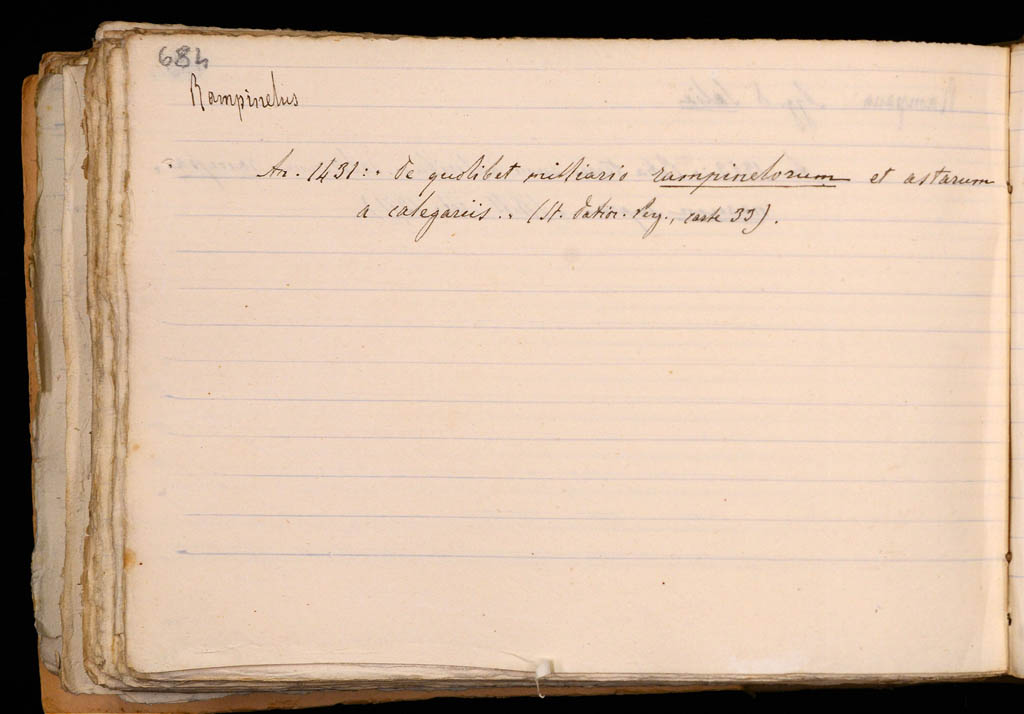 684
Rampinelus
An. 1431: . de quolibet milliario rampinelorum et astarum
a calegariis . . (St. Dation. Reg., carte 33).